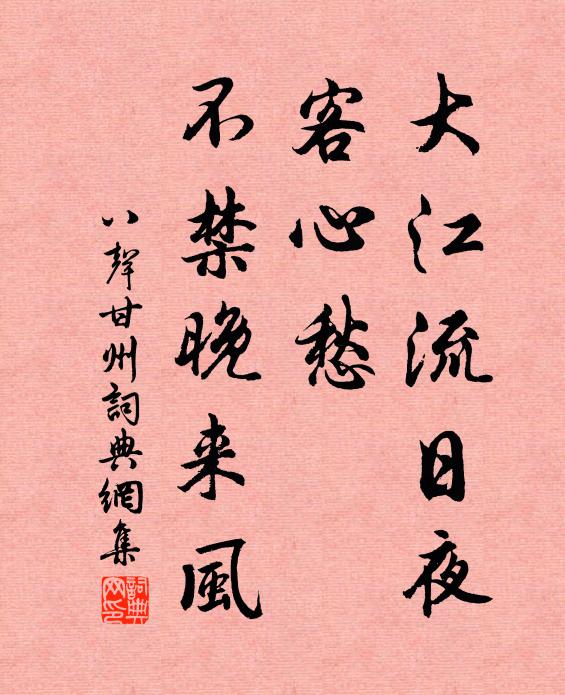 大江流日夜
客心愁
不禁晚来風
八聲甘州詞典網集
詞典網印